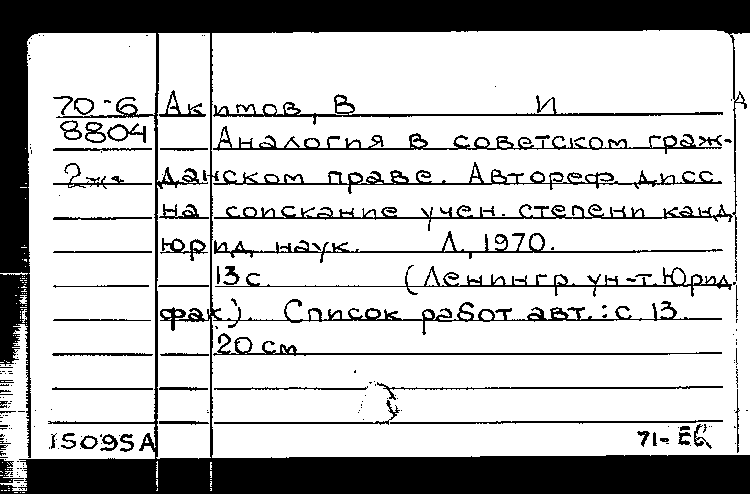 70-6 Акимов, В И
8804 Аналогия в советском граж-
2жа данском праве. Автореф. дисс.
на соискание учен. степени канд.
юрид. наук. Л., 1970.
13 с. (Ленингр. ун-т. Юрид.
фак.). Список работ авт.: с. 13.
20 см
15095А 71-ЕВ